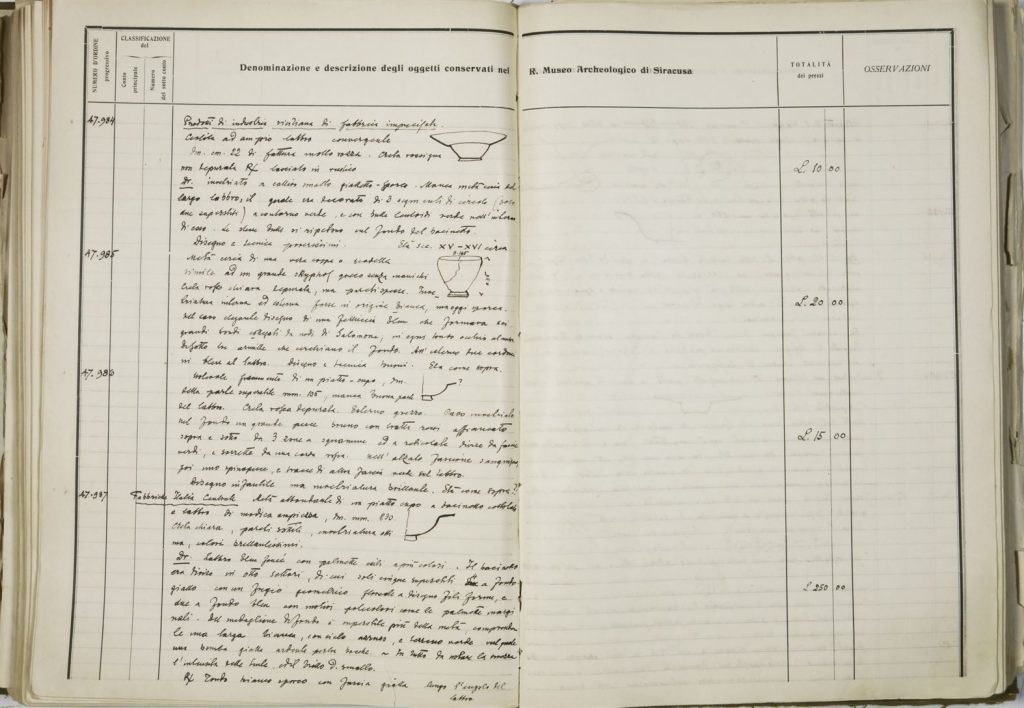 NUMERO D'ORDINE
progressivo
CLASSIFICAZIONE
del
Conto
principale
Numero
del sotto conto
Denominazione e descrizione degli oggetti conservati nel R. Museo Archeologico di Siracusa
TOTALITÀ
dei prezzi
OSSERVAZIONI
47.984
Prodotti di industria siciliana di fabbrica imprecisata.
Ciotola ad ampio labbro convergente
Dm. cm. 22 di fattura molto rozza. Creta rossigna
non depurata R/ lasciato in rustico
L. 10 00
Dr. invetriato a smalto gialletto-sporco. Manca metà circa del
largo labbro, il quale era decorato di 3 segmenti di cerchio (
due superstiti) a contorno verde, e con verde nell'interno
di esso. Le stesse si ripetono sul fondo del bacinetto
Disegno e tecnica poverissimi. Età sec. XV-XVI circa
47.985
Metà circa di una vera coppa o scodella
simile ad un grande skyphos greco senza manichi
Creta rossa chiara depurata, ma pareti spesse. Inve-
triatura interna ed esterna forse in origine bianca, ma oggi sporca.
L. 20 00
Nel cavo elegante disegno di una fettuccia bleu che formava sei
grandi tondi legati da nodi di Salomone; in ogni tondo
Di sotto tre armille che cerchiano il fondo. All'esterno due cordoni
in bleu al labbro. Disegno e tecnica buoni. Età come sopra.
47.986
Notevole frammento di un piatto-cupo, dm.
della parte superstite mm. 185, manca buona parte
del labbro. Creta rossa depurata. Esterno grezzo. Cavo invetriato
nel fondo un grande pesce bruno con tratti rossi affiancato
sopra e sotto da 3 zone a squamme ed a reticolato divise da fascie
L. 15 00
verdi, e sorrette da una corda rossa. Nell'alzato fascione sanguigno
poi uno spinapesce, e tracce di altra fascia verde sul labbro.
Disegno infantile ma invetriatura brillante. Età come sopra?
47.987
Fabbriche Italia Centrale Metà abbondante di un piatto cupo a bacinetto
e labbro di modica ampiezza, dm. mm. 270
Creta chiara, pareti sottili, invetriatura otti-
ma, colori brillantissimi.
Dr. Labbro bleu foncé con palmette a più colori. Il bacinetto
era diviso in otto settori, di cui soli cinque superstiti a fondo
L. 250 00
giallo con un fregio geometrico floreale a disegno, e
due a fondo bleu con motivi policolori come le palmette margi-
nali. Del medaglione di fondo è superstite più della metà, comprenden-
te una larga bianca, con cielo, e terreno verde sul quale
una bomba gialla. È da tutto da notare la
l'intensità delle tinte, ed il brillo di smalto.
R/ Tondo bianco sporco con fascia gialla lungo l'angolo del
labbro